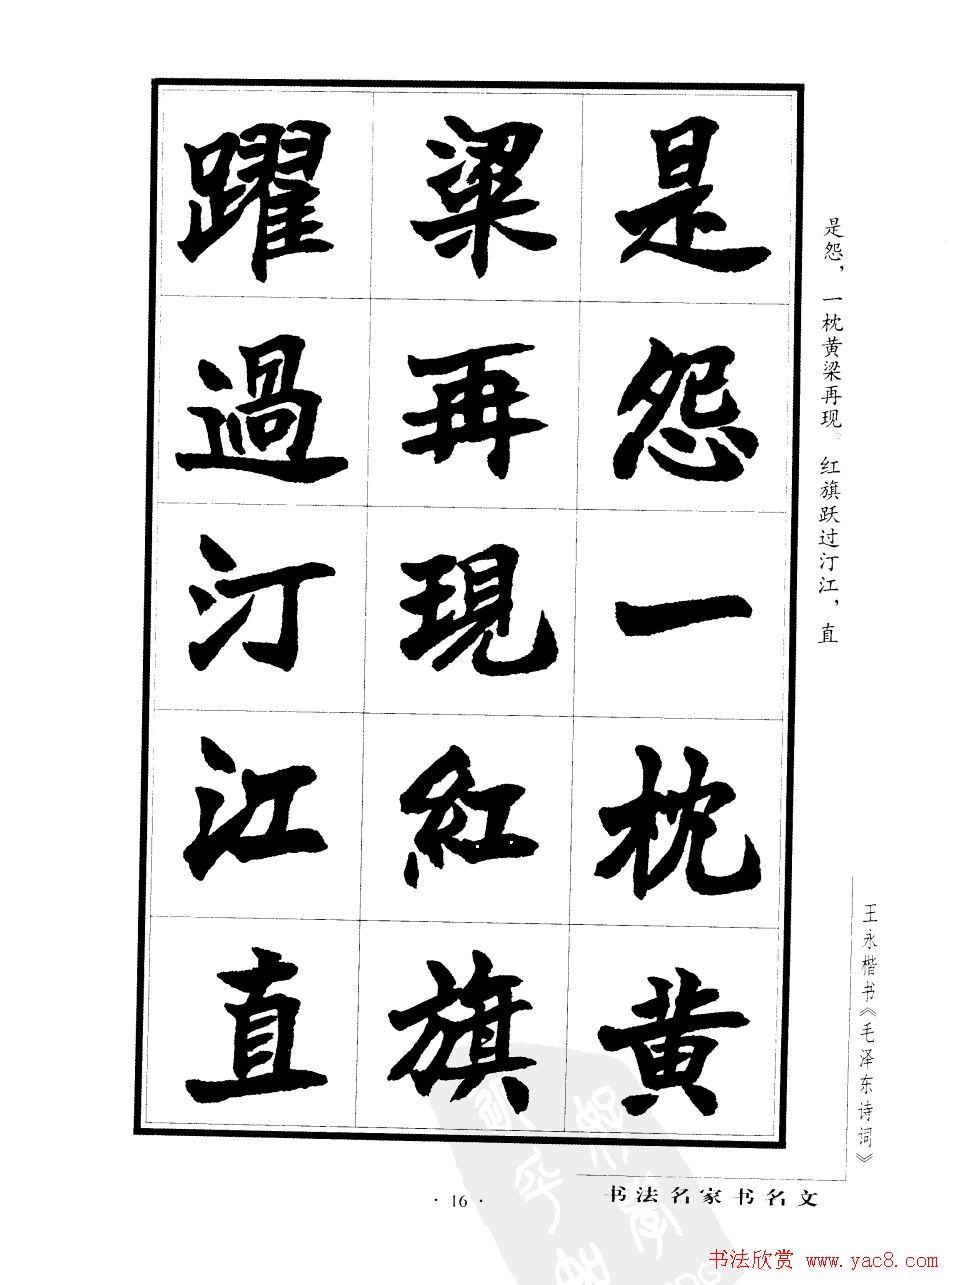 是怨一枕黄
粱再現紅旗
躍過汀江直
是怨，一枕黄梁再现 红旗跃过汀江，直
王永楷书《毛泽东诗词》
· 16 ·
书法名家书名文
书法欣赏 www.yac8.com